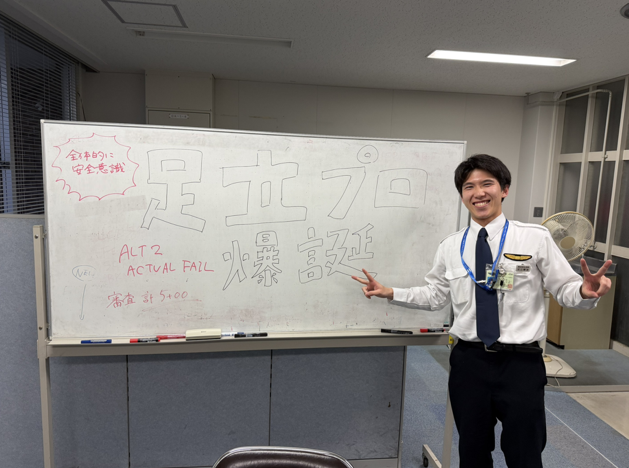 全体的に
安全意識
足立プロ
爆誕
ALT 2
ACTUAL FAIL
審査 計 5+00